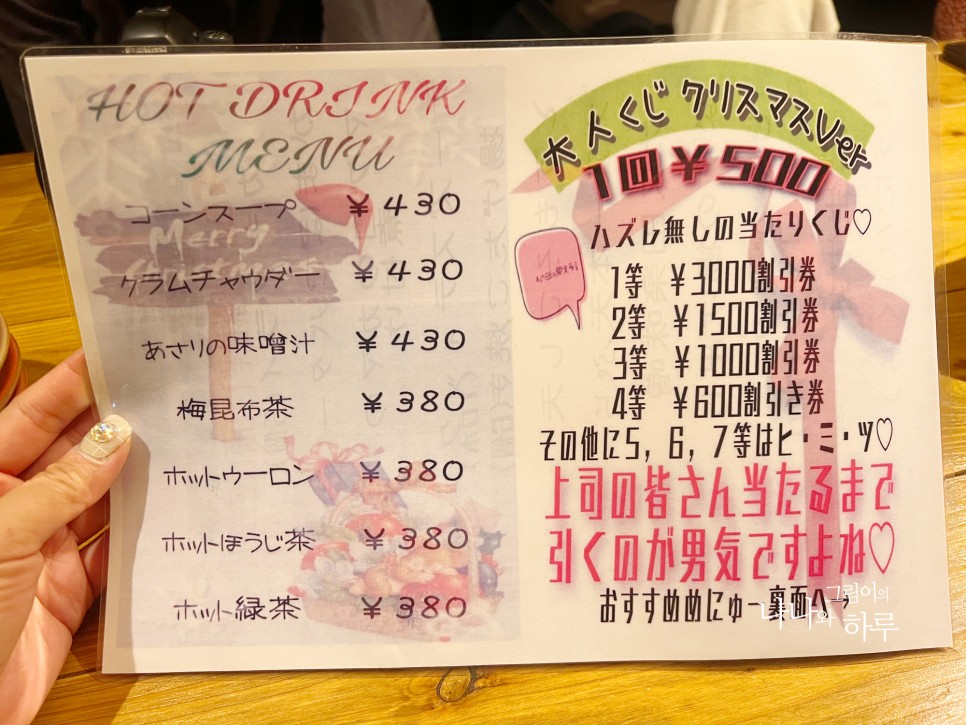 HOT DRINK
MENU
コーンスープ ¥430
クラムチャウダー ¥430
あさりの味噌汁 ¥430
梅昆布茶 ¥380
ホットウーロン ¥380
ホットほうじ茶 ¥380
ホット緑茶 ¥380
Merry
大人くじ クリスマスVer
1回¥500
ハズレ無しの当たりくじ♡
1等 ¥3000割引券
2等 ¥1500割引券
3等 ¥1000割引券
4等 ¥600割引き券
その他に5,6,7等はヒ・ミ・ツ♡
上司の皆さん当たるまで
引くのが男気ですよね♡
おすすめめにゅー裏面へ→
그림이의
나나와 하루